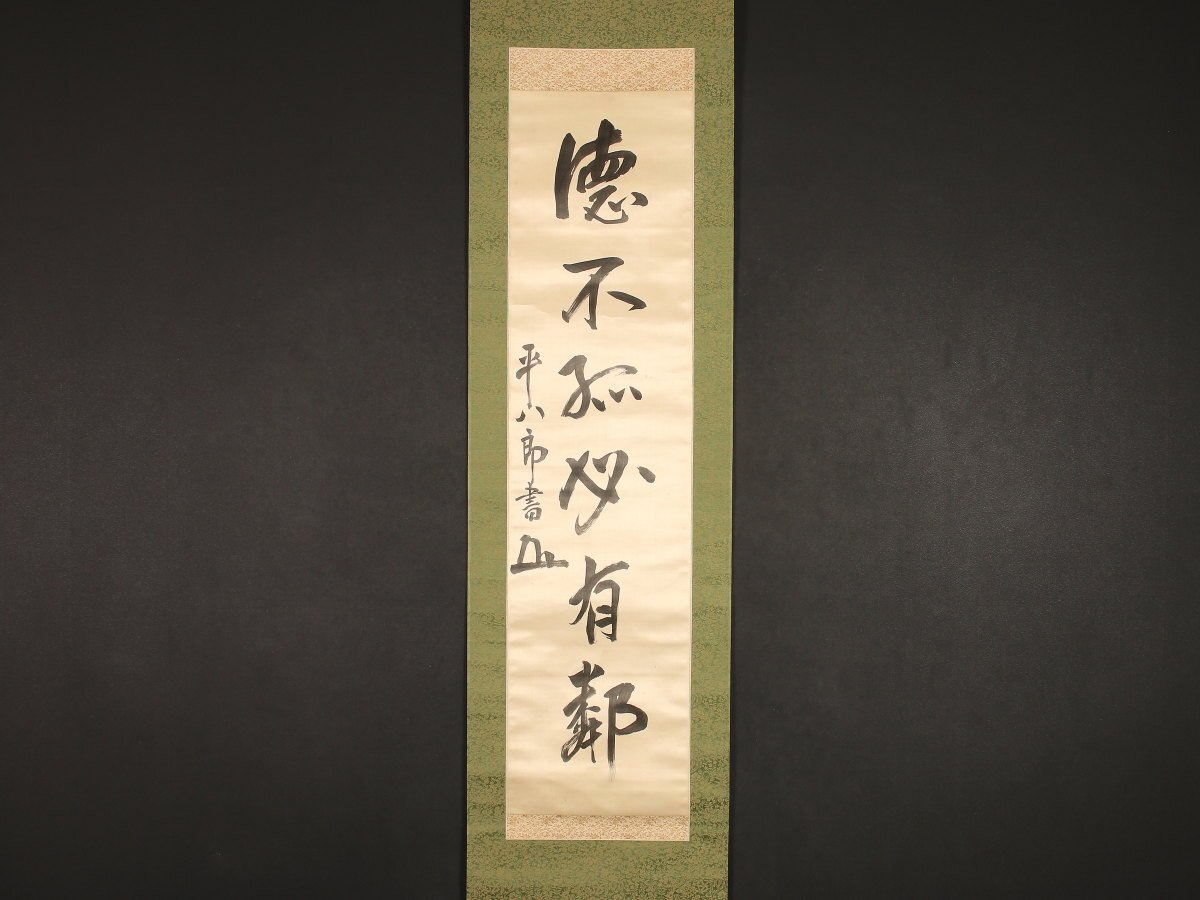 德不孤必有鄰
平八郎書